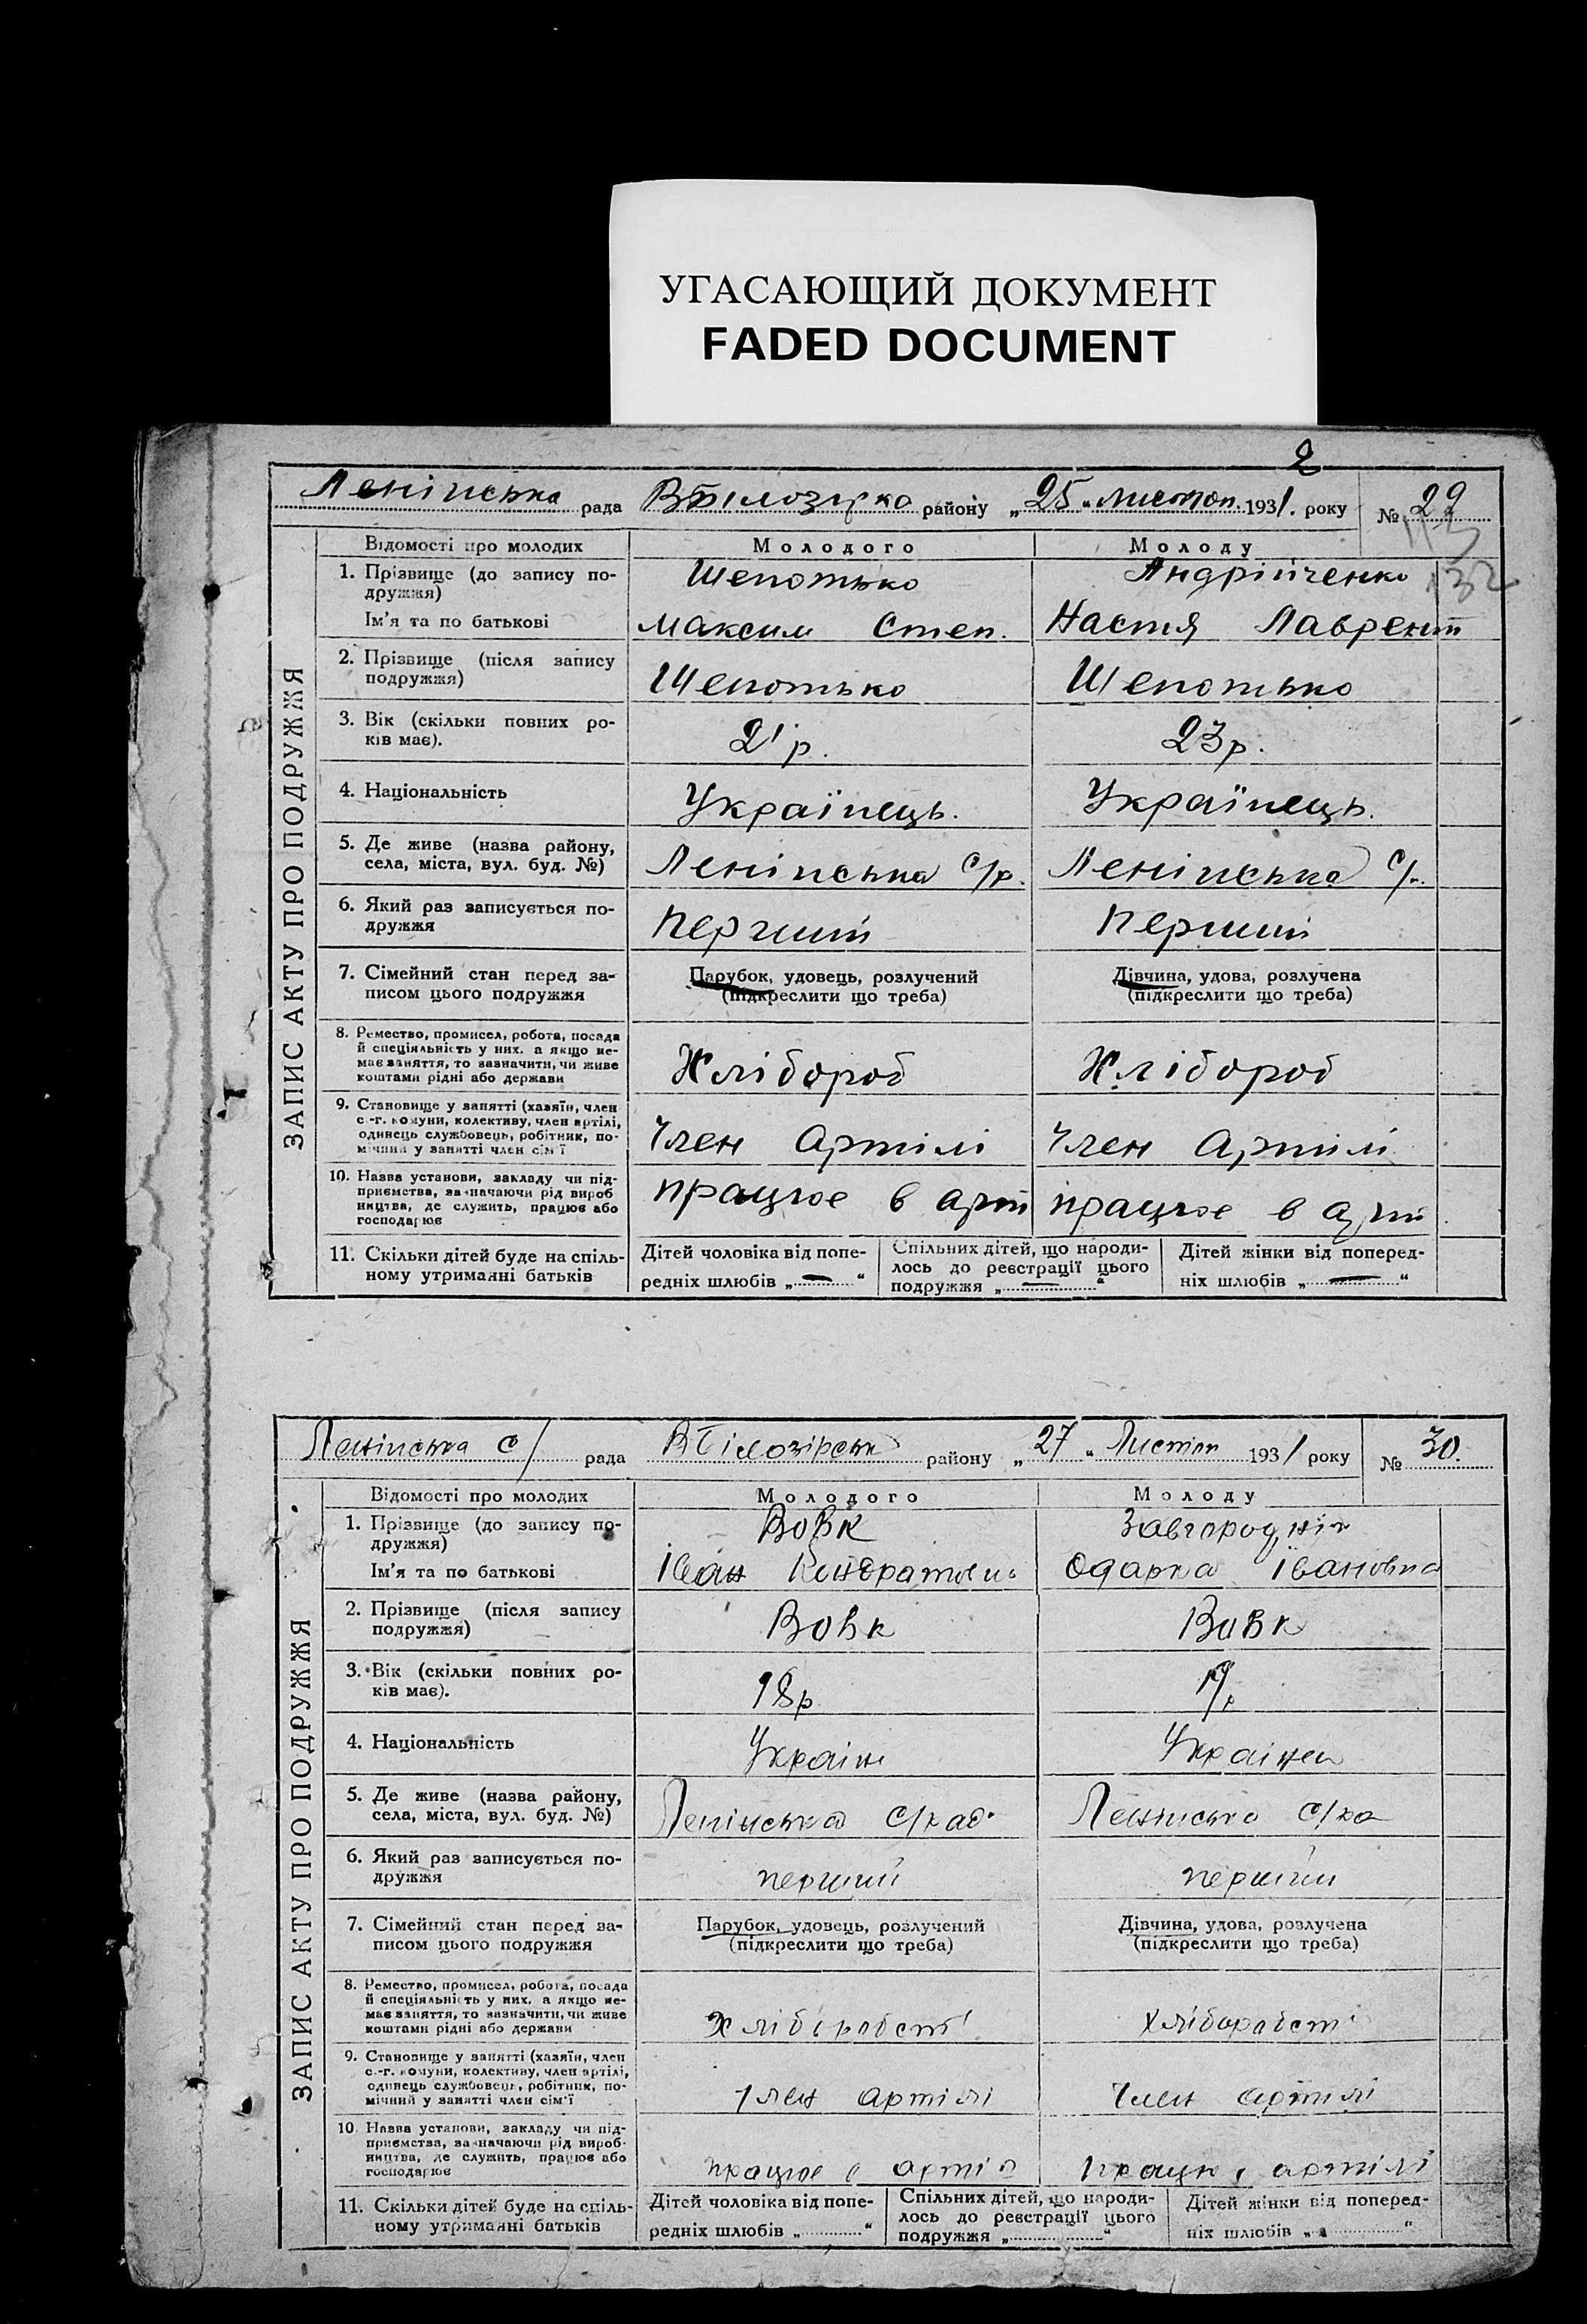 УГАСАЮЩИЙ ДОКУМЕНТ
FADED DOCUMENT
2
Ленінська рада ВБілозірка району „25“ листоп. 1931. року № 29
113
132
ЗАПИС АКТУ ПРО ПОДРУЖЖЯ
Відомості про молодих Молодого Молоду
1. Прізвище (до запису по- Шепотько Андрійченко
дружжя)
Ім'я та по батькові Максим Степ. Настя Лаврент
2. Прізвище (після запису
подружжя) Шепотько Шепотько
3. Вік (скільки повних ро-
ків має). 21 р. 23 р.
4. Національність Українець. Українець.
5. Де живе (назва району,
села, міста, вул. буд. №) Ленінська с/р. Ленінська с/р.
6. Який раз записується по-
дружжя Перший Перший
7. Сімейний стан перед за- Парубок, удовець, розлучений Дівчина, удова, розлучена
писом цього подружжя (підкреслити що треба) (підкреслити що треба)
8. Ремество, промисел, робота, посада
й спеціяльність у них, а якщо не-
має заняття, то зазначити, чи живе
коштами рідні або держави Хлібороб Хлібороб
9. Становище у занятті (хазяїн, член
с.-г. комуни, колективу, член артілі,
одинець службовець, робітник, по-
мічний у занятті член сім'ї Член Артілі Член Артілі
10. Назва установи, закладу чи під-
приємства, зазначаючи рід вироб
ництва, де служить, працює або
господарює працює в арт працює в арт
11. Скільки дітей буде на спіль- Дітей чоловіка від попе- Спільних дітей, що народи- Дітей жінки від поперед-
ному утриманні батьків редніх шлюбів „ — “ лось до реєстрації цього ніх шлюбів „ — “
подружжя „ — “
Ленінська с/ рада ВБілозірськ району „27“ Листоп 1931 року № 30.
ЗАПИС АКТУ ПРО ПОДРУЖЖЯ
Відомості про молодих Молодого Молоду
1. Прізвище (до запису по- Вовк Завгородня
дружжя)
Ім'я та по батькові Іван Кондратови Одарка Івановна
2. Прізвище (після запису
подружжя) Вовк Вовк
3. Вік (скільки повних ро-
ків має). 18 р р
4. Національність Україн Україне
5. Де живе (назва району,
села, міста, вул. буд. №) Ленінська с/рад. Ленінська с/ра
6. Який раз записується по-
дружжя перший перший
7. Сімейний стан перед за- Парубок, удовець, розлучений Дівчина, удова, розлучена
писом цього подружжя (підкреслити що треба) (підкреслити що треба)
8. Ремество, промисел, робота, посада
й спеціяльність у них, а якщо не-
має заняття, то зазначити, чи живе
коштами рідні або держави хліборобст хліборобст
9. Становище у занятті (хазяїн, член
с.-г. комуни, колективу, член артілі,
одинець службовець, робітник, по-
мічний у занятті член сім'ї член артілі член артілі
10. Назва установи, закладу чи під-
приємства, зазначаючи рід вироб-
ництва, де служить, працює або
господарює працює в артіл працю в артілі
11. Скільки дітей буде на спіль- Дітей чоловіка від попе- Спільних дітей, що народи- Дітей жінки від поперед-
ному утриманні батьків редніх шлюбів „ “ лось до реєстрації цього ніх шлюбів „ “
подружжя „ “